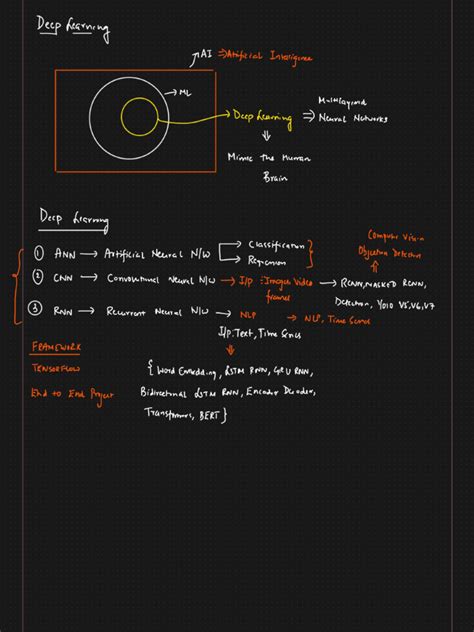 Deep Learning
AI ⇒ Artificial Intelligence
→ ML
→ Deep Learning ⇒ Multilayered Neural Networks
⇓
Mimic the Human
Brain
Deep Learning
① ANN → Artificial Neural N/W → Classification
→ Regression
Computer Vision
Object Detection
② CNN → Convolutional Neural N/W → I/p: Images, Video frames → RCNN, MASKED RCNN,
Detection, Yolo V5, V6, V7
③ RNN → Recurrent Neural N/W → NLP → NLP, Time Series
I/p: Text, Time Series
FRAMEWORK
TENSORFLOW
End to End Project
{Word Embedding, LSTM RNN, GRU RNN,
Bidirectional LSTM RNN, Encoder Decoder,
Transformers, BERT}